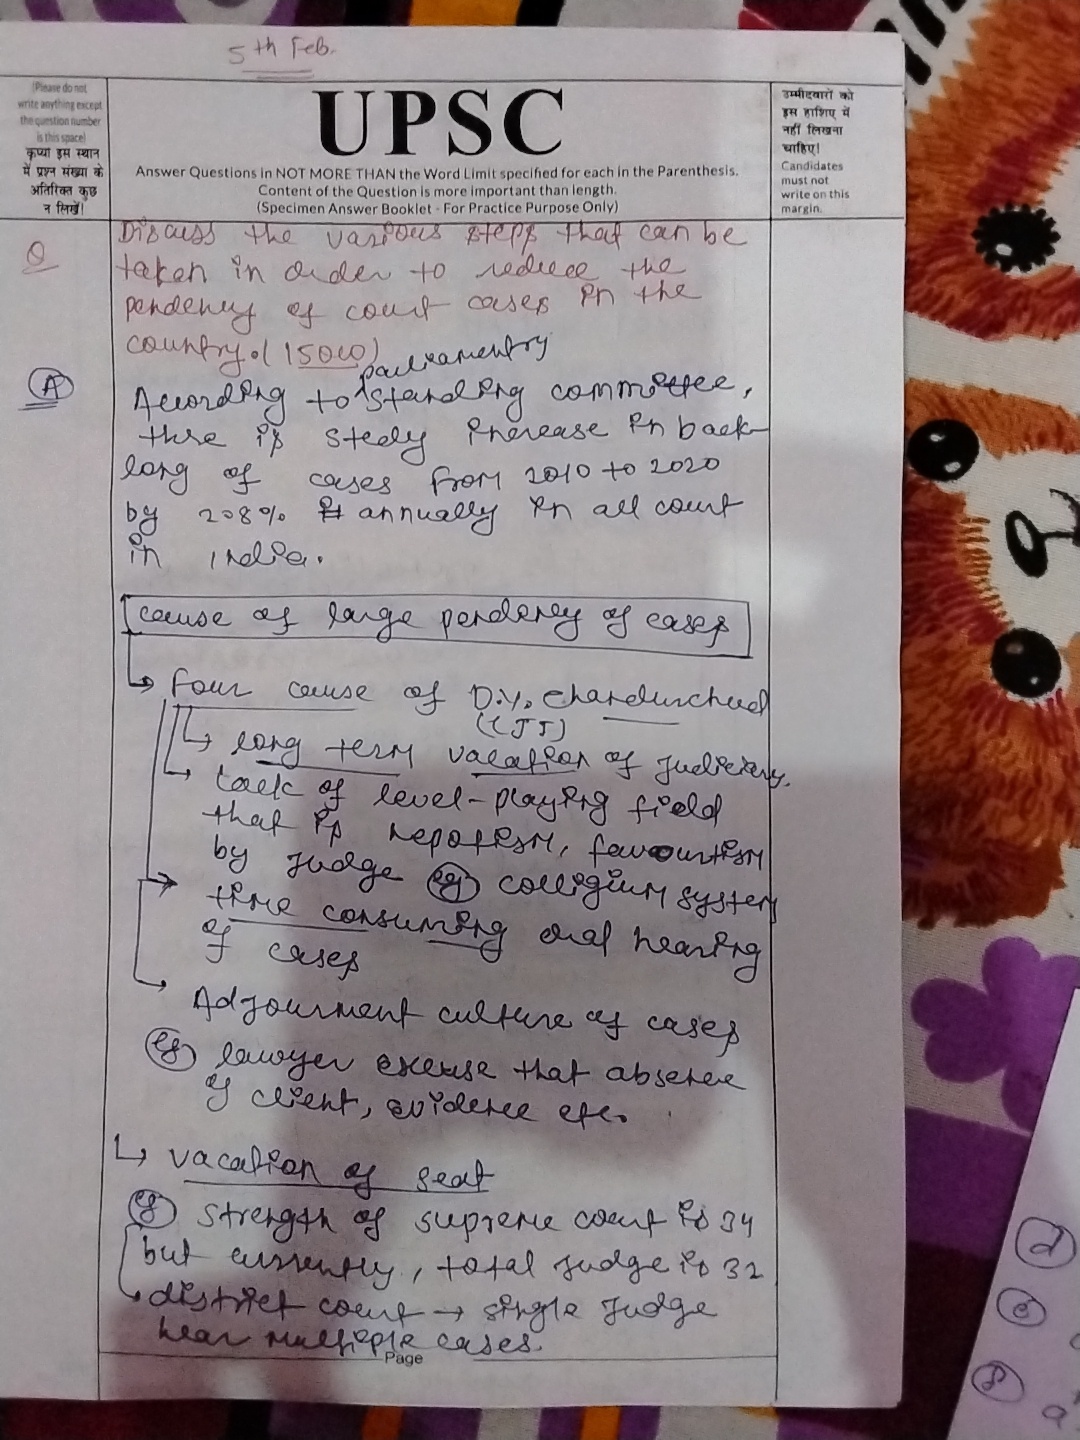 5th Feb.
(Please do not
write anything except
the question number
is this space)
कृप्या इस स्थान
में प्रश्न संख्या के
अतिरिक्त कुछ
न लिखें।
UPSC
Answer Questions in NOT MORE THAN the Word Limit specified for each in the Parenthesis.
Content of the Question is more important than length.
(Specimen Answer Booklet - For Practice Purpose Only)
उम्मीदवारों को
इस हाशिए में
नहीं लिखना
चाहिए।
Candidates
must not
write on this
margin.
Q Discuss the various steps that can be
taken in order to reduce the
pendency of court cases in the
country. (150W)
parliamentry
A According to standing committee,
thre is steely increase in back-
long of cases from 2010 to 2020
by 2.8% annually in all court
in India.
cause of large pendency of cases
four cause of D.Y. Chandurchud
(CJI)
long term vacation of Judiciary.
lack of level-playing field
that is nepotism, favourtism
by Judge eg colligium system
time consuming oral hearing
of cases
Adjournment culture of cases
eg lawyer excuse that absence
of client, evidence etc.
vacation of seat
eg strength of supreme court is 34
but currently, total Judge is 32
district court → single Judge
hear multiple cases.
Page
d
e
f